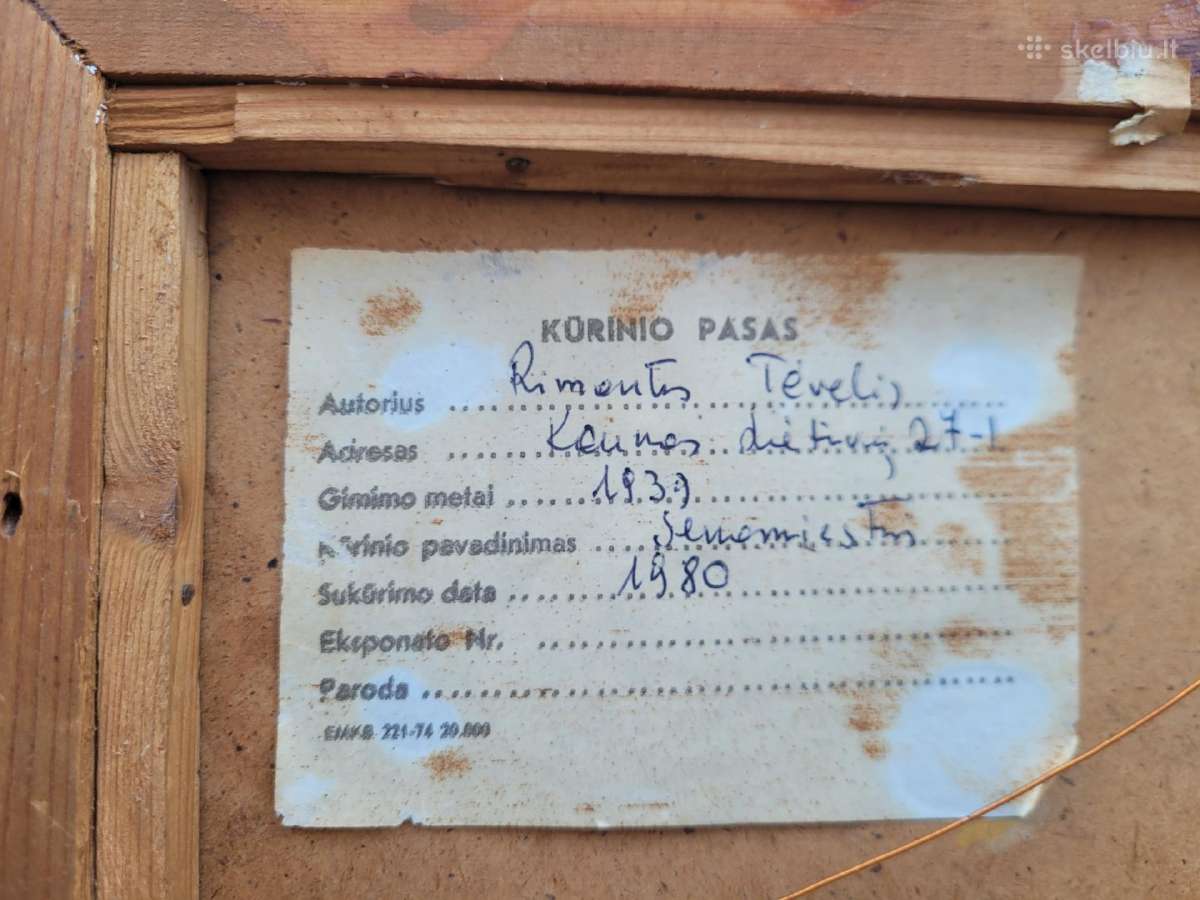 skelbiu.lt
KŪRINIO PASAS
Autorius Rimantas Tėvelis
Adresas Kaunas 27-1
Gimimo metai 1939
Kūrinio pavadinimas Senamiestis
Sukūrimo data 1980
Eksponato Nr.
Paroda
EMKB 221-74 20.000